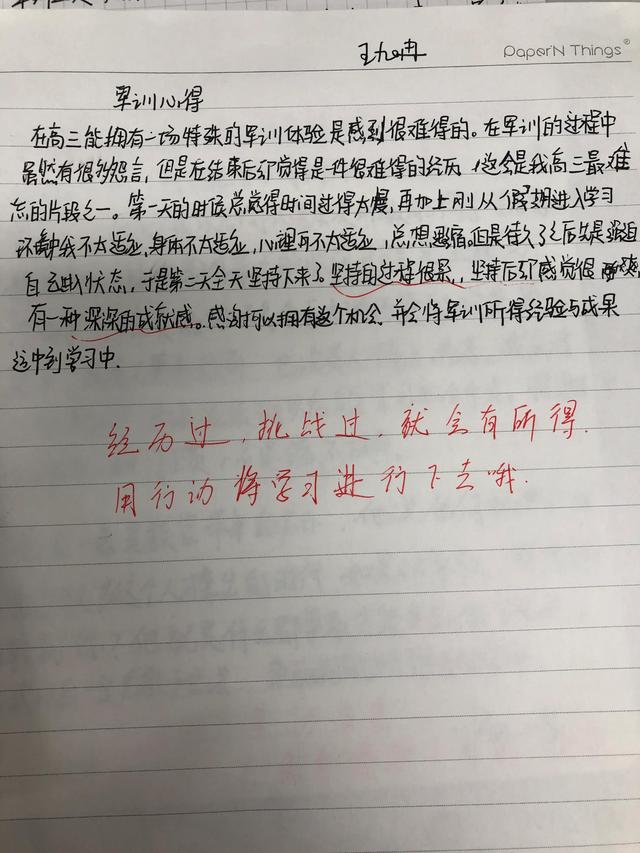 PaperN Things
军训心得
在高三能拥有一场特殊的军训体验是感到很难得的。在军训的过程中
虽然有很多怨言，但是在结束后却觉得是一件很难得的经历，这会是我高三最难
忘的片段之一。第一天的时候总觉得时间过得太慢，再加上刚从假期进入学习
环境中我不太适应，身体不太适应，心裡可不太适应，总想回宿。但是待久了之后
自己进入状态，于是第二天全天坚持下来了。坚持的过程很累，坚持后却感觉很
有一种深深的成就感。感谢可以拥有这个机会，并会将军训所得经验与成果
运中到学习中.
经历过，挑战过，就会有所得.
用行动将学习进行下去哦.